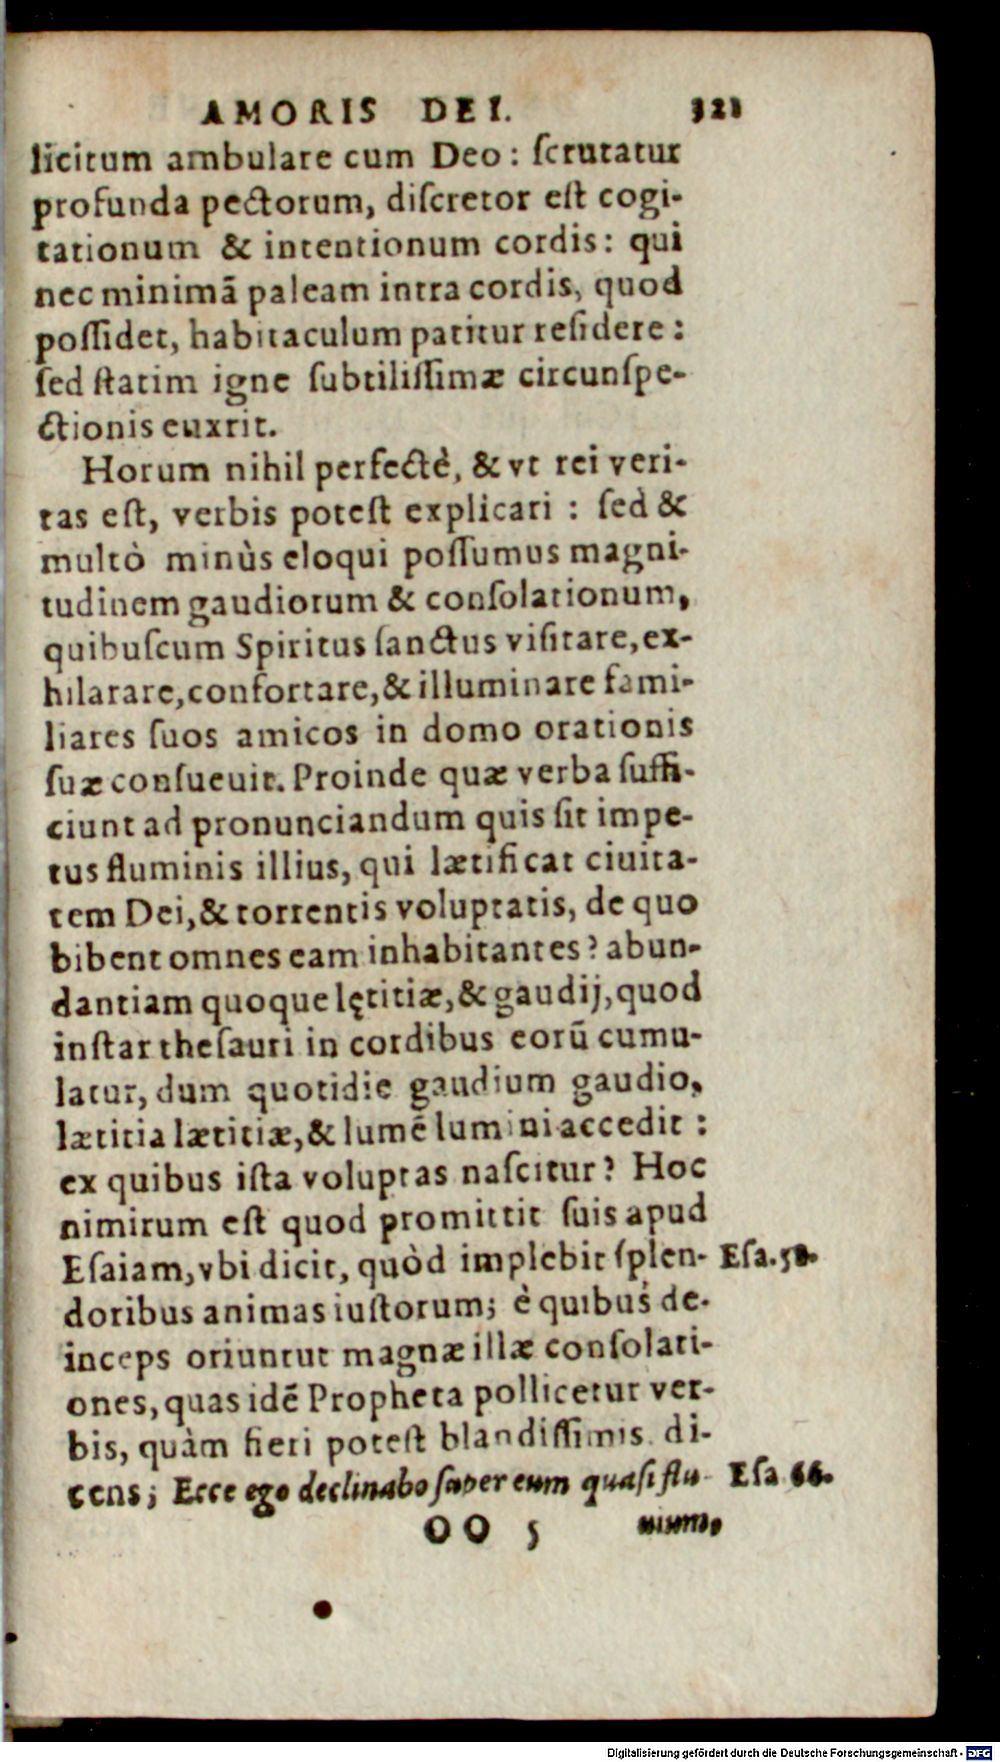 AMORIS DEI. 321
licitum ambulare cum Deo: ſcrutatur
profunda pectorum, diſcretor eſt cogi-
tationum & intentionum cordis: qui
nec minimã paleam intra cordis, quod
poſſidet, habitaculum patitur reſidere:
ſed ſtatim igne ſubtiliſſimæ circunſpe-
ctionis euxrit.
Horum nihil perfectè, & vt rei veri-
tas eſt, verbis poteſt explicari : ſed &
multò minùs eloqui poſſumus magni-
tudinem gaudiorum & conſolationum,
quibuſcum Spiritus ſanctus viſitare, ex-
hilarare, confortare, & illuminare fami-
liares ſuos amicos in domo orationis
ſuæ conſueuit. Proinde quæ verba ſuffi-
ciunt ad pronunciandum quis ſit impe-
tus fluminis illius, qui lætificat ciuita-
tem Dei, & torrentis voluptatis, de quo
bibent omnes eam inhabitantes? abun-
dantiam quoque lętitiæ, & gaudij, quod
inſtar theſauri in cordibus eorũ cumu-
latur, dum quotidie gaudium gaudio,
lætitia lætitiæ, & lumẽ lumini accedit :
ex quibus iſta voluptas naſcitur? Hoc
nimirum eſt quod promittit ſuis apud
Eſaiam, vbi dicit, quòd implebit ſplen- Eſa. 58.
doribus animas iuſtorum; è quibus de-
inceps oriuntur magnæ illæ conſolati-
ones, quas idẽ Propheta pollicetur ver-
bis, quàm fieri poteſt blandiſſimis di-
cens; Ecce ego declinabo ſuper eum quaſi flu- Eſa 66.
OO 5 uium,
Digitalisierung gefördert durch die Deutsche Forschungsgemeinschaft - DFG